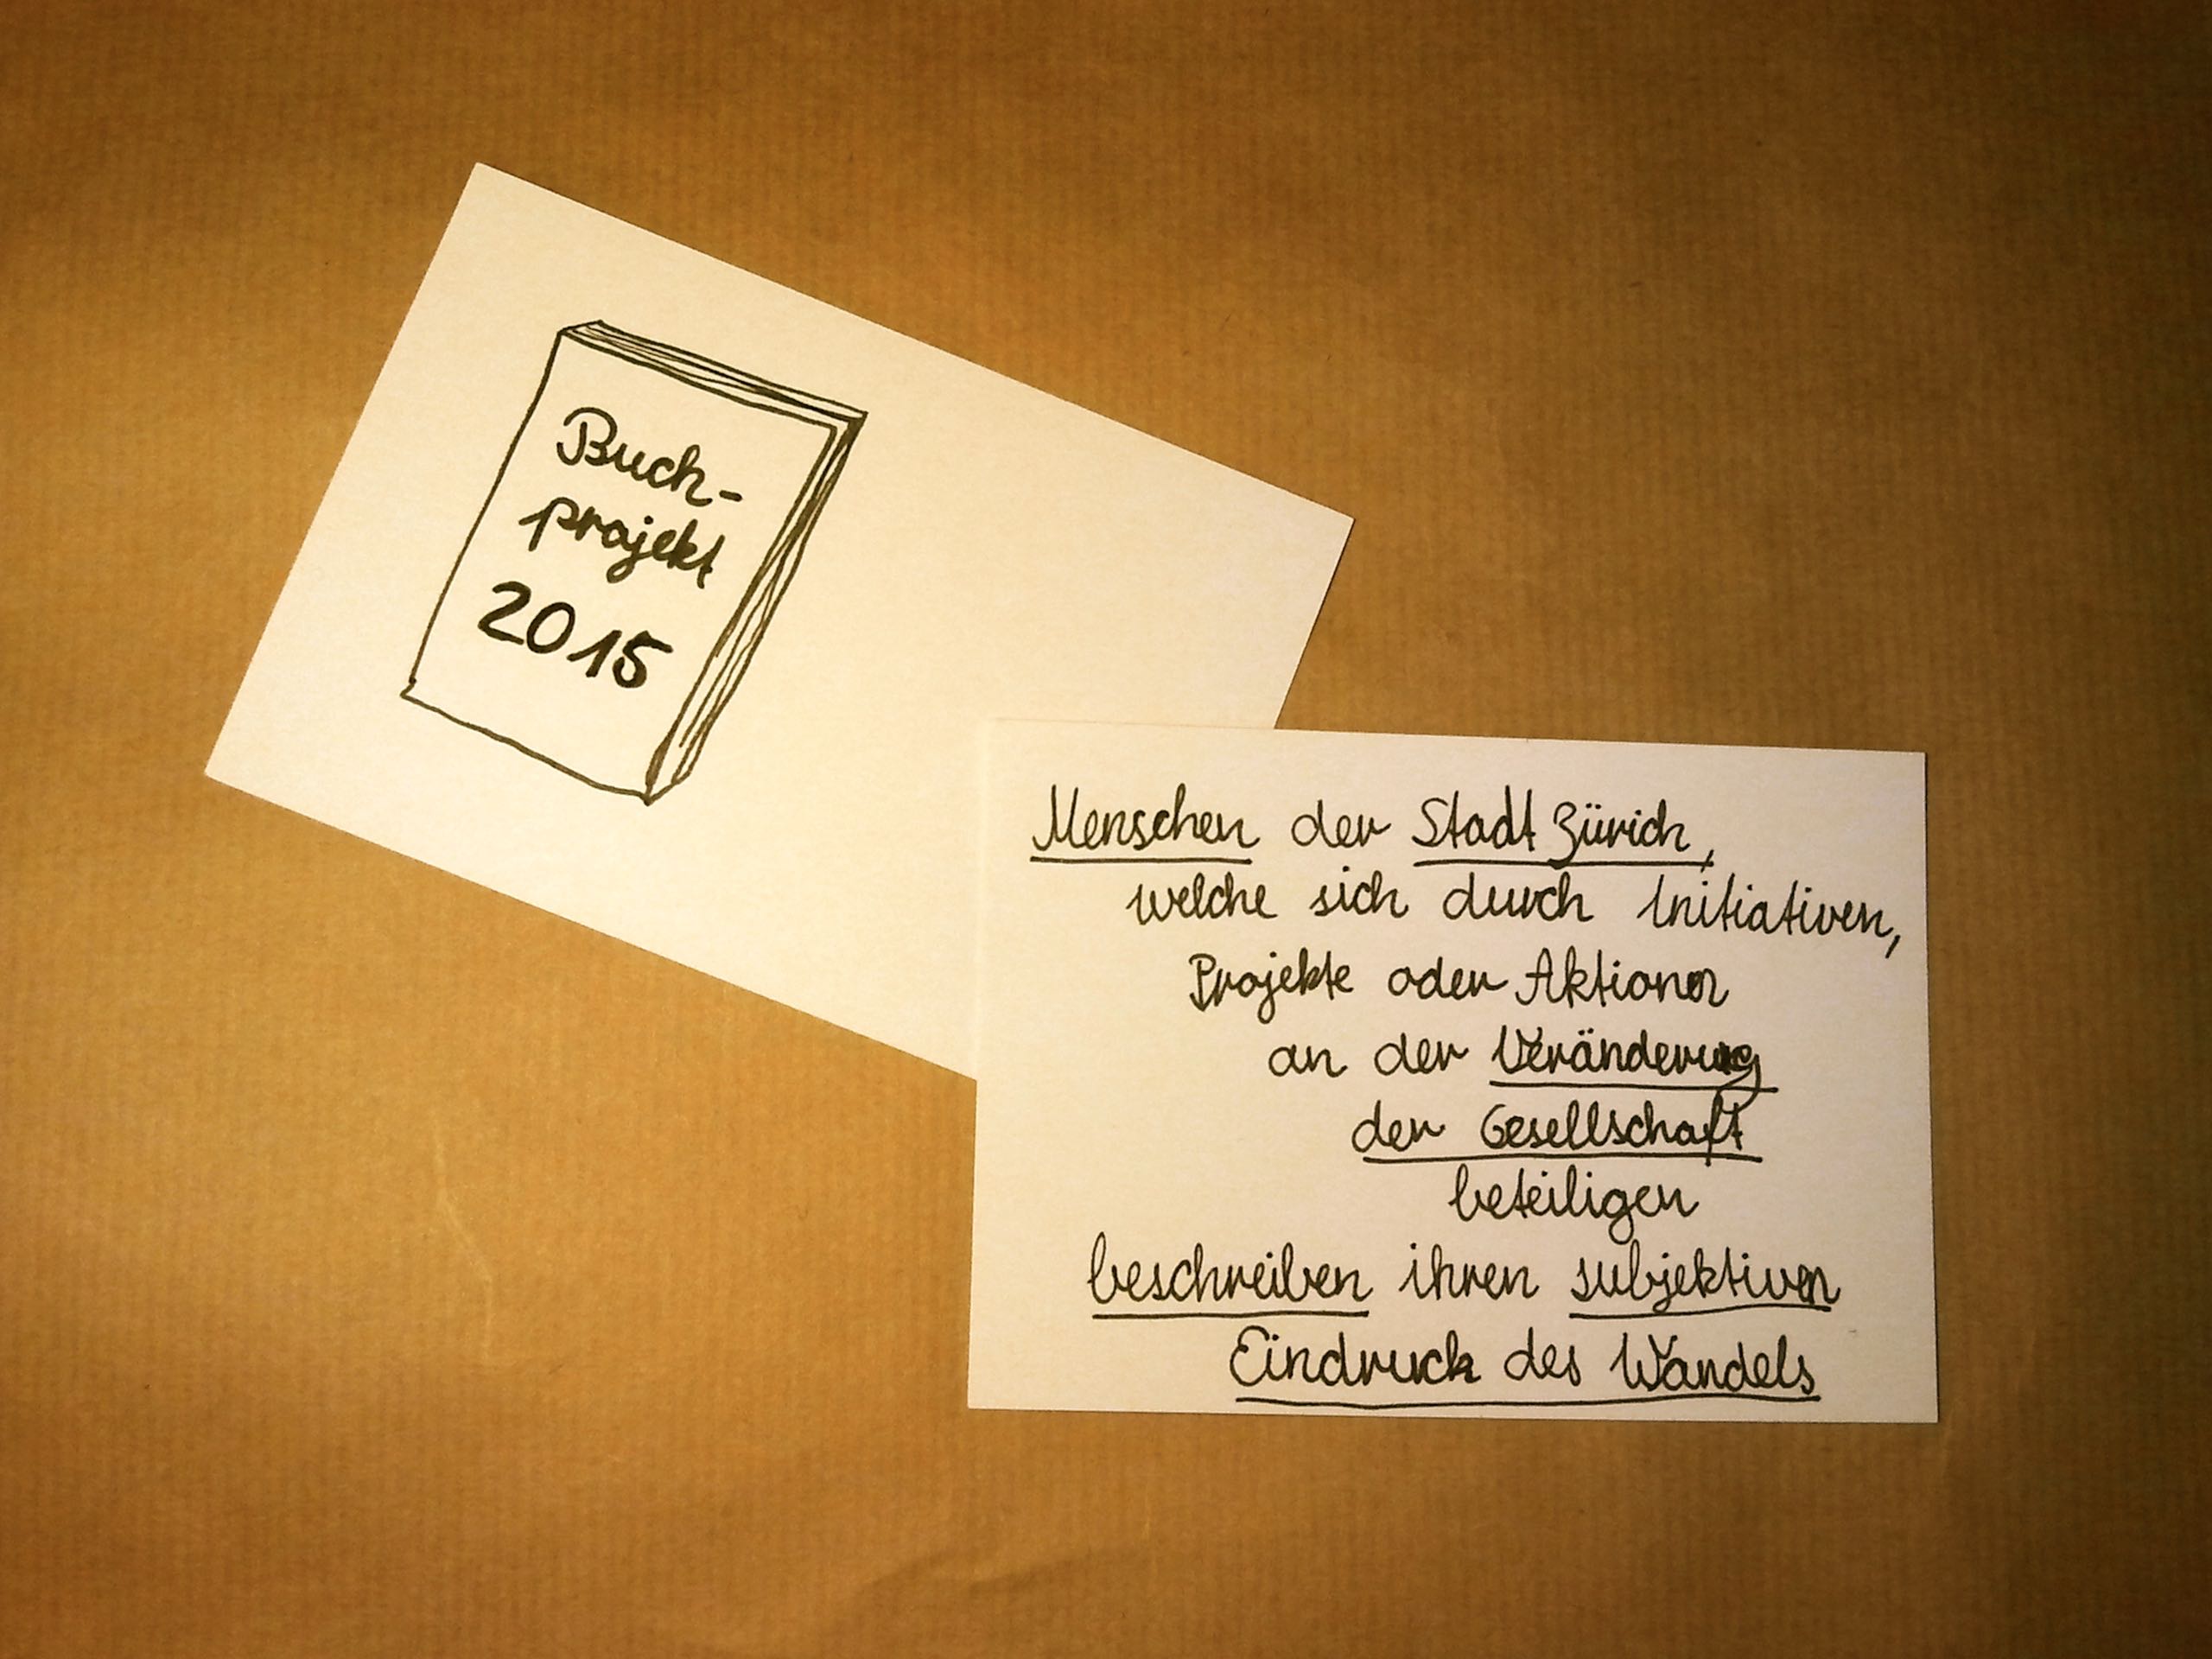 Buch-
projekt
2015
Menschen der Stadt Zürich,
welche sich durch Initiativen,
Projekte oder Aktionen
an der Veränderung
der Gesellschaft
beteiligen
beschreiben ihren subjektiven
Eindruck des Wandels